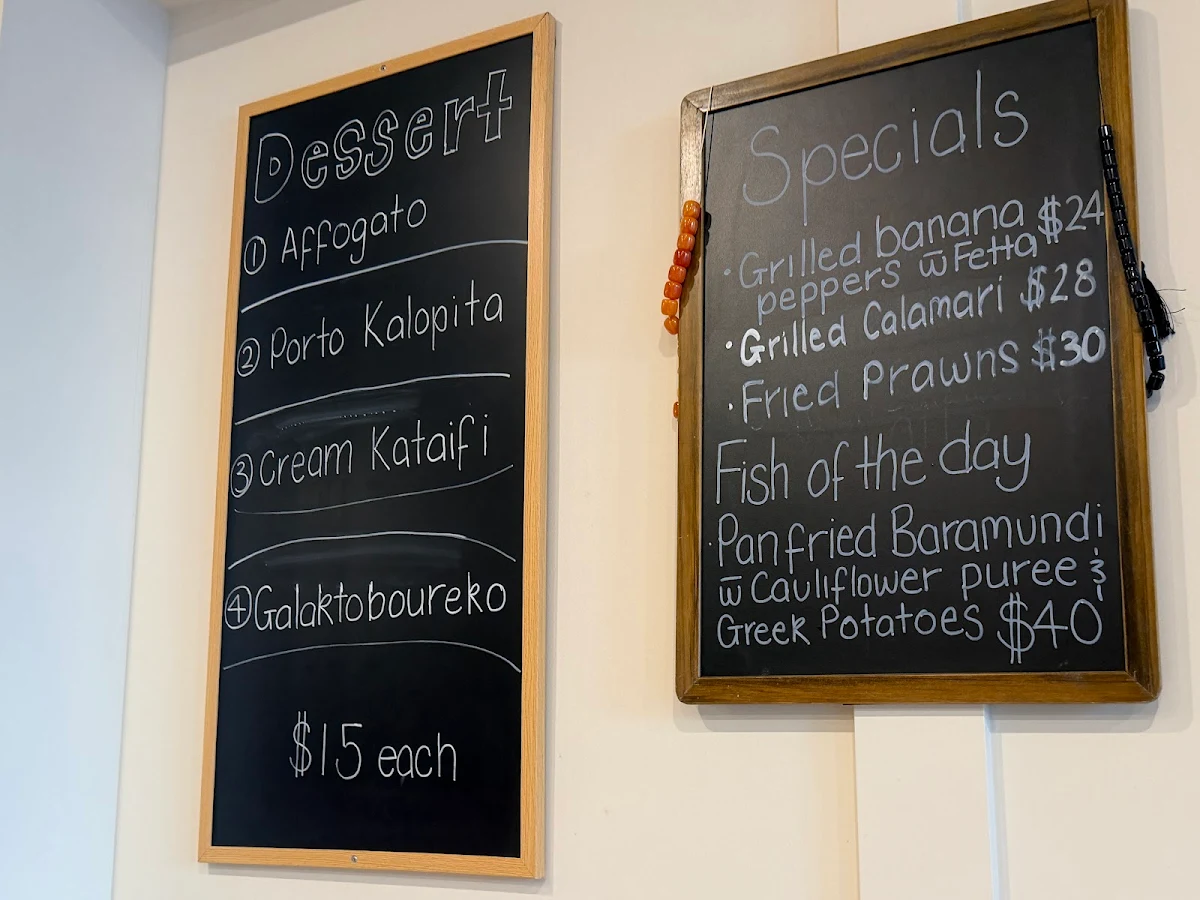 Dessert
① Affogato
② Porto Kalopita
③ Cream Kataifi
④ Galaktoboureko
$15 each
Specials
· Grilled banana $24
peppers w̅ Fetta
· Grilled Calamari $28
· Fried Prawns $30
Fish of the day
· Panfried Baramundi
w̅ Cauliflower puree &
Greek Potatoes $40